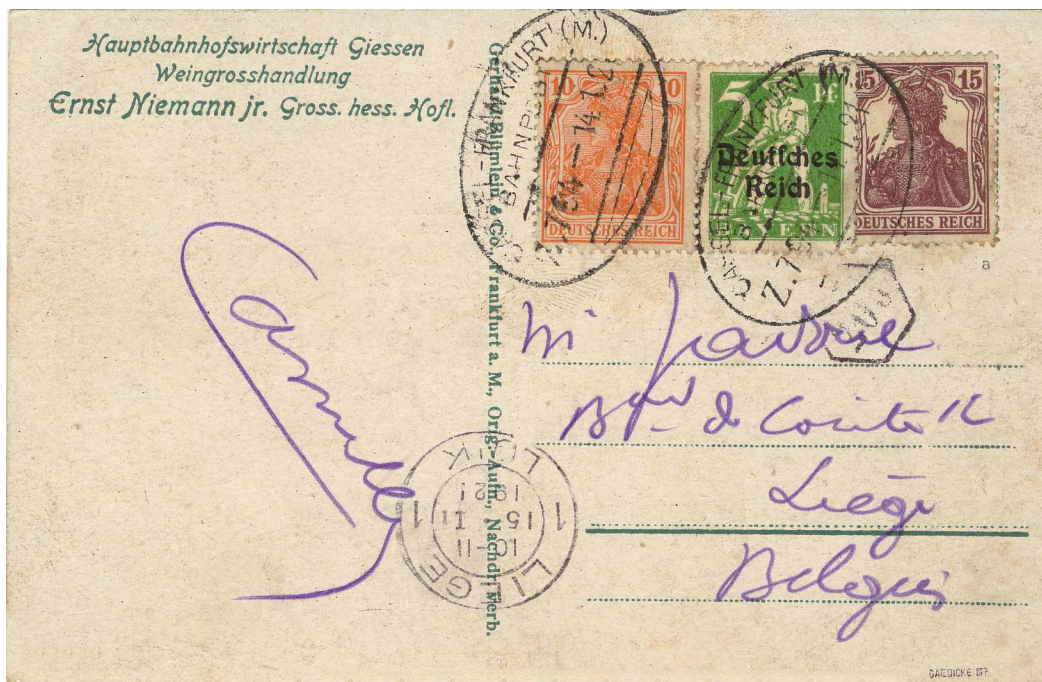 Hauptbahnhofswirtschaft Giessen
Weingrosshandlung
Ernst Niemann jr. Gross. hess. Hofl.
Gerhard Blümlein & Co., Frankfurt a. M., Orig.-Aufn., Nachdr. verb.
CASSEL-FRANKFURT (M.)
BAHNPOST
10
DEUTSCHES REICH
5 Pf
Deutsches
Reich
BAYERN
15 15
DEUTSCHES REICH
CASSEL-FRANKFURT (M.)
Z.
a
Liège
Belgique
LIEGE
10-11
15 II
1921
1 1
LUIK
GAEDICKE BPP